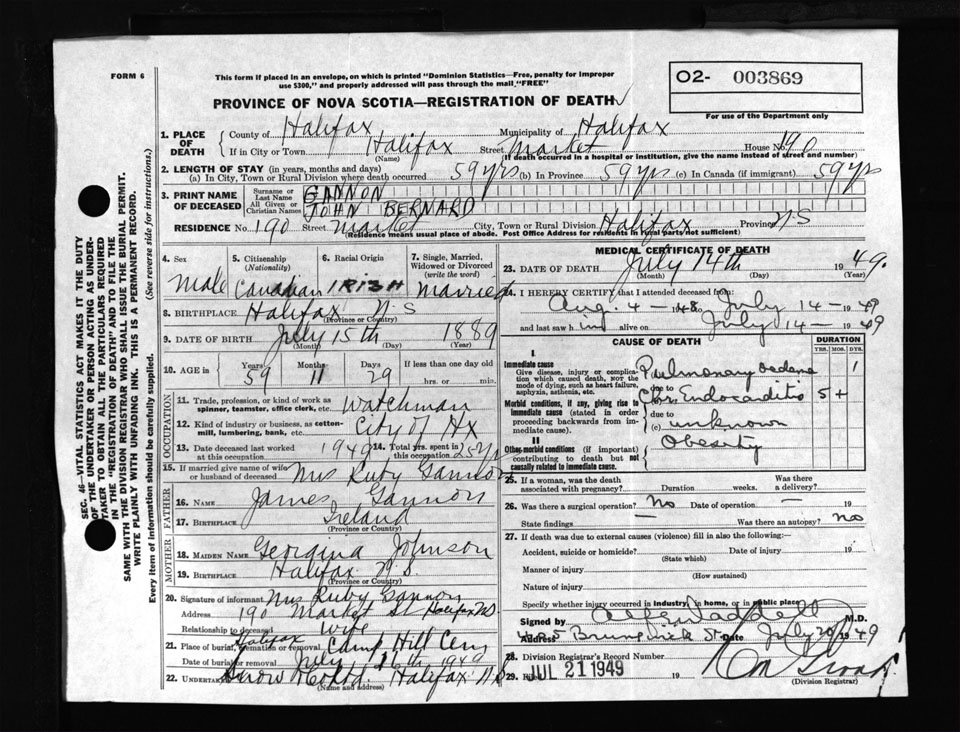 FORM 6
This form if placed in an envelope, on which is printed "Dominion Statistics—Free, penalty for improper
use $300," and properly addressed will pass through the mail, "FREE"
O2- 003869
For use of the Department only
PROVINCE OF NOVA SCOTIA—REGISTRATION OF DEATH
SEC. 46—VITAL STATISTICS ACT MAKES IT THE DUTY
OF THE UNDERTAKER OR PERSON ACTING AS UNDER-
TAKER TO OBTAIN ALL THE PARTICULARS REQUIRED
IN THE "REGISTRATION OF DEATH" AND TO FILE THE
SAME WITH THE DIVISION REGISTRAR WHO SHALL ISSUE THE BURIAL PERMIT.
WRITE PLAINLY WITH UNFADING INK. THIS IS A PERMANENT RECORD.
Every item of information should be carefully supplied. (See reverse side for instructions.)
1. PLACE OF DEATH
County of Halifax Municipality of Halifax
If in City or Town Halifax Street Market House No. 190
(Name) (If death occurred in a hospital or institution, give the name instead of street and number)
2. LENGTH OF STAY (in years, months and days)
(a) In City, Town or Rural Division where death occurred 59 yrs (b) In Province 59 yrs (c) In Canada (if immigrant) 59 yrs
3. PRINT NAME OF DECEASED
Surname or Last Name GANNON
All Given or Christian Names JOHN BERNARD
RESIDENCE No. 190 Street Market City, Town or Rural Division Halifax Province N.S
(Residence means usual place of abode. Post Office Address for residents in Rural parts not sufficient)
4. Sex Male
5. Citizenship (Nationality) Canadian
6. Racial Origin IRISH
7. Single, Married, Widowed or Divorced (write the word) Married
8. BIRTHPLACE Halifax N.S
(Province or Country)
9. DATE OF BIRTH July 15th 1889
(Month) (Day) (Year)
10. AGE in Years 59 Months 11 Days 29 If less than one day old hrs. or min.
OCCUPATION
11. Trade, profession, or kind of work as spinner, teamster, office clerk, etc. Watchman
12. Kind of industry or business, as cotten-mill, lumbering, bank, etc. City of Hx
13. Date deceased last worked at this occupation 1949
14. Total yrs. spent in this occupation 25 yrs
15. If married give name of wife or husband of deceased Mrs Ruby Gannon
FATHER
16. Name James Gannon
17. Birthplace Ireland
(Province or Country)
MOTHER
18. MAIDEN NAME Georgina Johnson
19. BIRTHPLACE Halifax N.S
(Province or Country)
20. Signature of informant Mrs Ruby Gannon
Address 190 Market St Halifax NS
Relationship to deceased Wife
21. Place of burial, cremation or removal Halifax Camp Hill Cem
Date of burial or removal July 16th 1949
22. UNDERTAKER Snow & Co Ltd. Halifax N.S
(Name and address)
MEDICAL CERTIFICATE OF DEATH
23. DATE OF DEATH July 14th 1949
(Month) (Day) (Year)
24. I HEREBY CERTIFY that I attended deceased from:
Aug. 4 - 1948 July 14 - 1949
and last saw him alive on July 14 - 1949
CAUSE OF DEATH
DURATION
YRS. MOS. DYS.
I
Immediate cause
Give disease, injury or complication which caused death, NOT the mode of dying, such as heart failure, asphyxia, asthenia, etc.
(a) Pulmonary oedema 1
due to
Morbid conditions, if any, giving rise to immediate cause (stated in order proceeding backwards from immediate cause).
(b) Endocarditis 5+
due to
(c) unknown
II
Other morbid conditions (if important) contributing to death but not causally related to immediate cause.
Obesity
25. If a woman, was the death associated with pregnancy? Duration weeks. Was there a delivery?
26. Was there a surgical operation? No Date of operation 19
State findings — Was there an autopsy? No
27. If death was due to external causes (violence) fill in also the following:—
Accident, suicide or homicide? Date of injury 19
(State which)
Manner of injury
(How sustained)
Nature of injury
Specify whether injury occurred in industry, in home, or in public place
Signed by M.D.
Address Brunswick St Date July 20 1949
28. Division Registrar's Record Number
29. Filed JUL 21 1949 19
(Division Registrar)